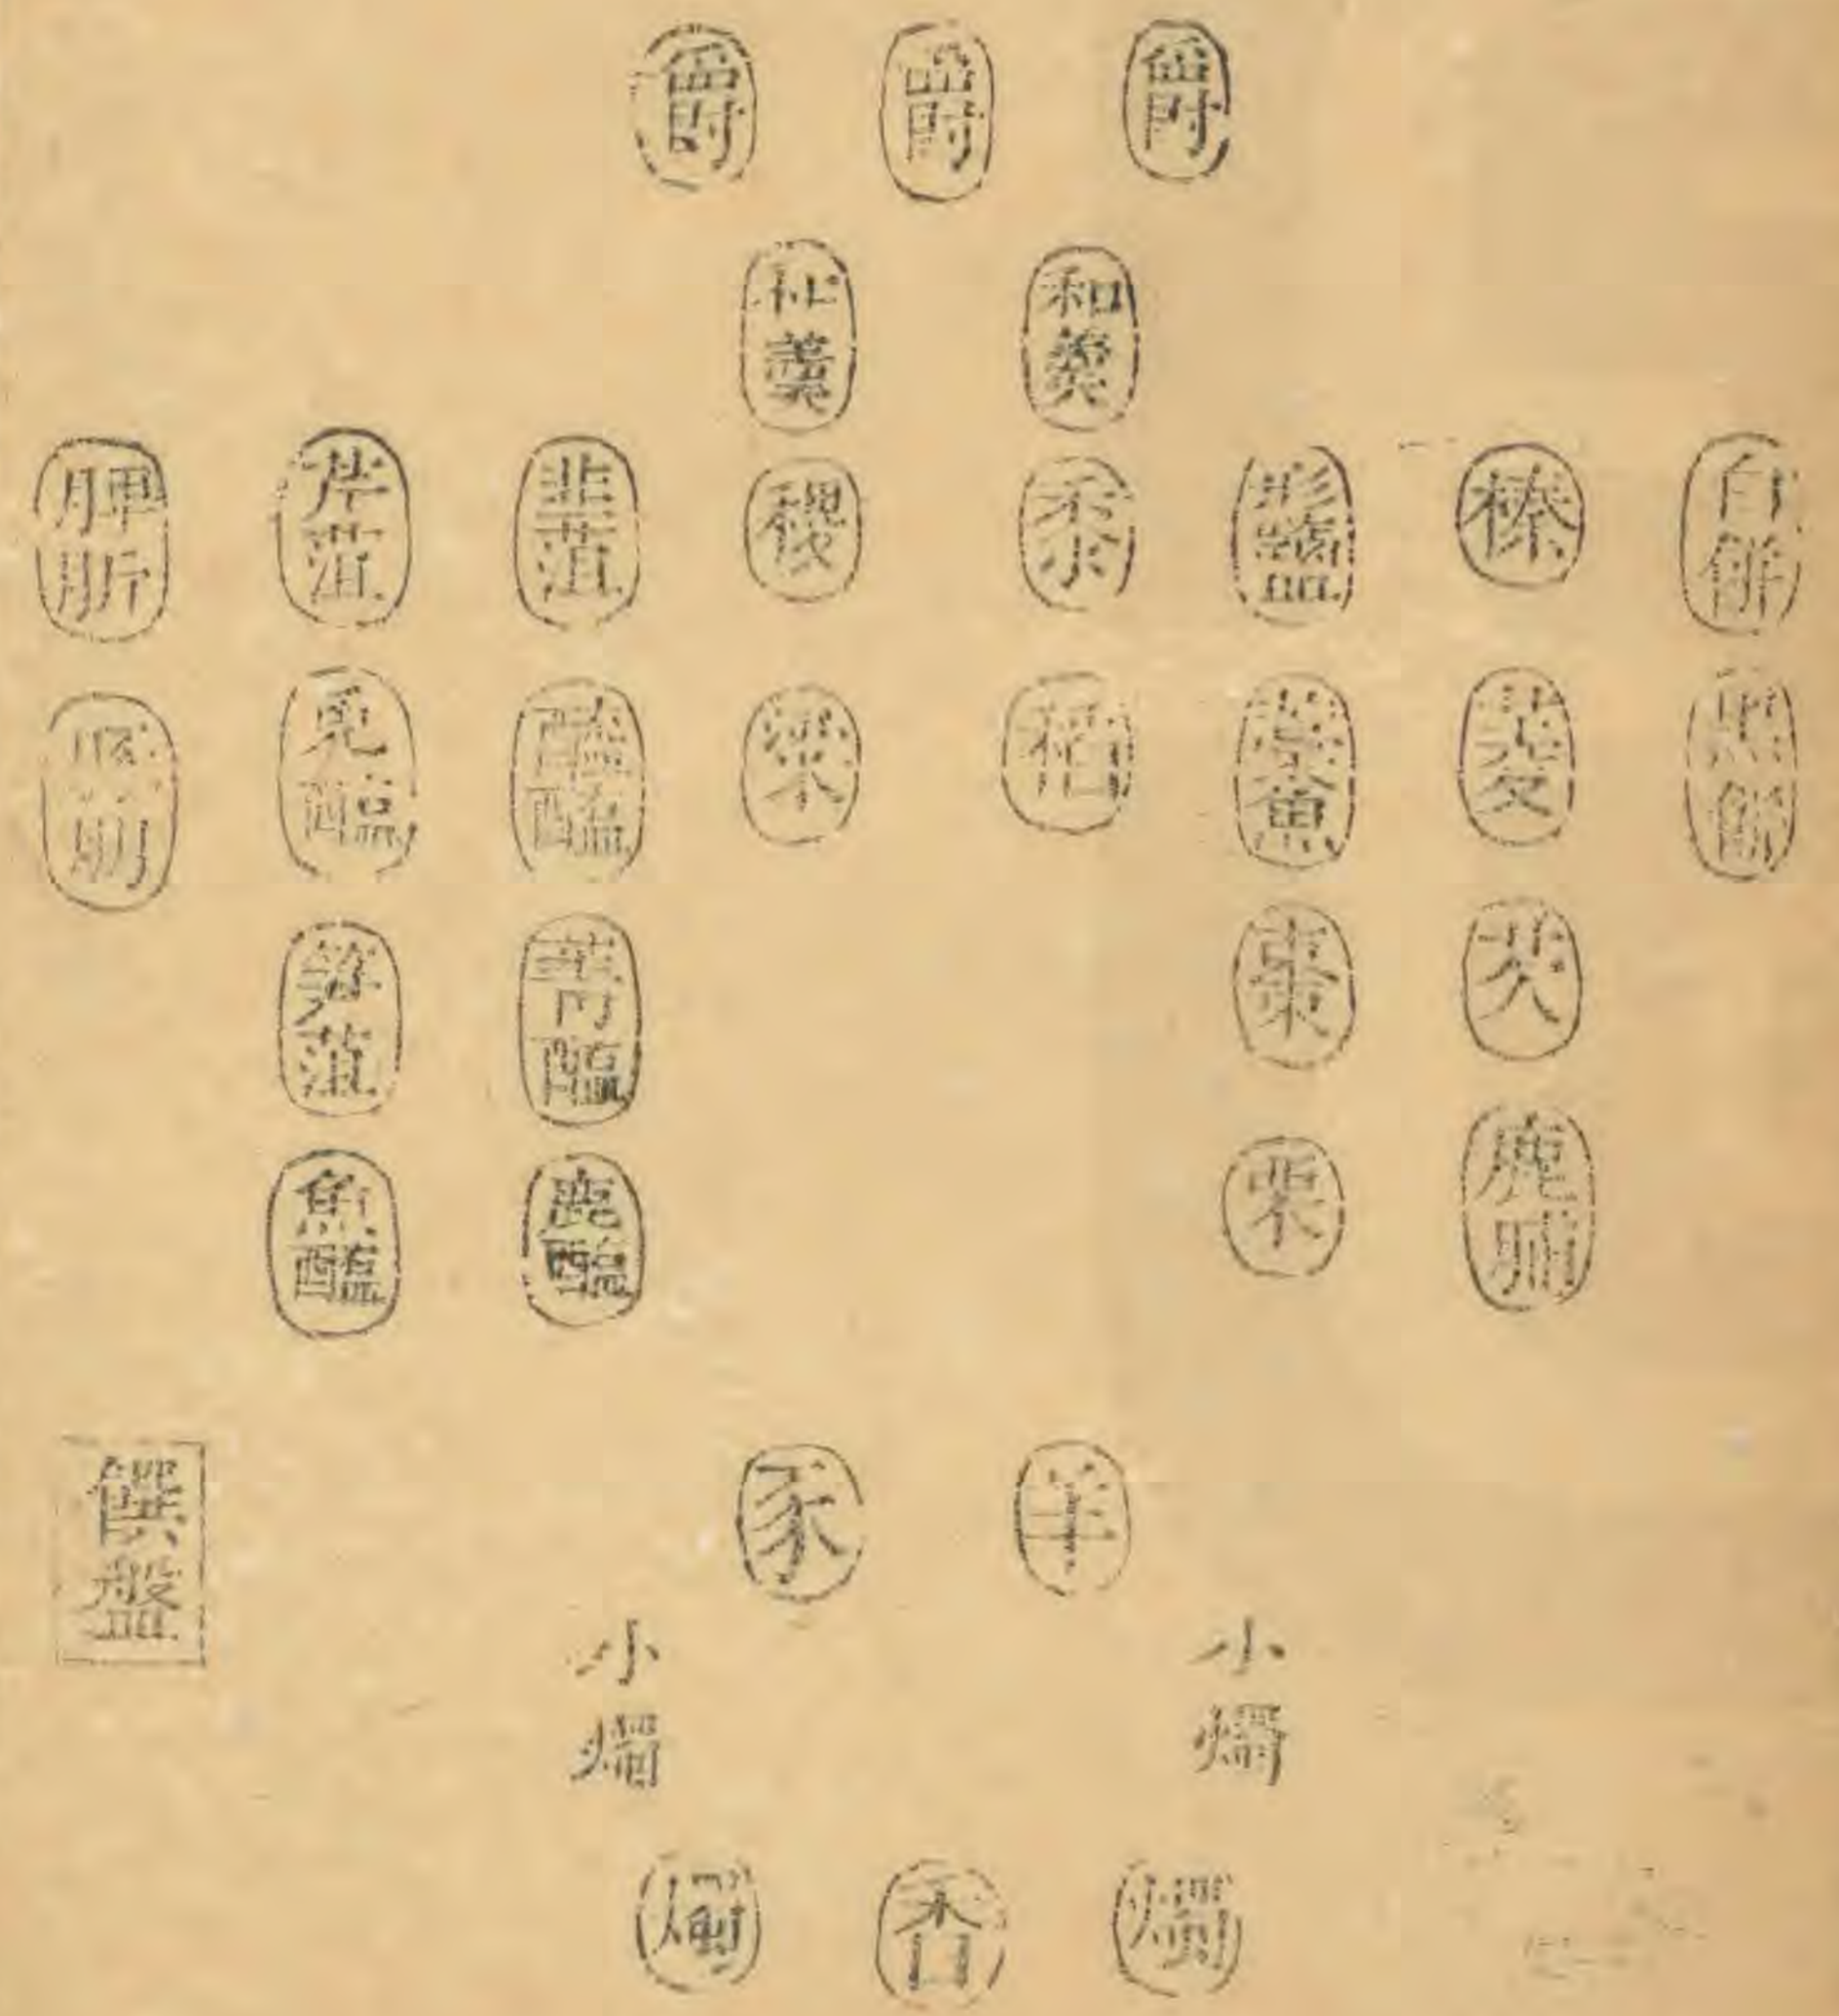 爵
爵
爵
和羹
和羹
白餅
榛
形鹽
黍
稷
韭菹
芹菹
脾肵
黑餅
菱
魚
稻
粱
醓醢
兔醢
豚
芡
棗
菁醢
筍菹
鹿脯
栗
鹿醢
魚醢
羊
豕
饌盤
小燭
小燭
燭
香
燭